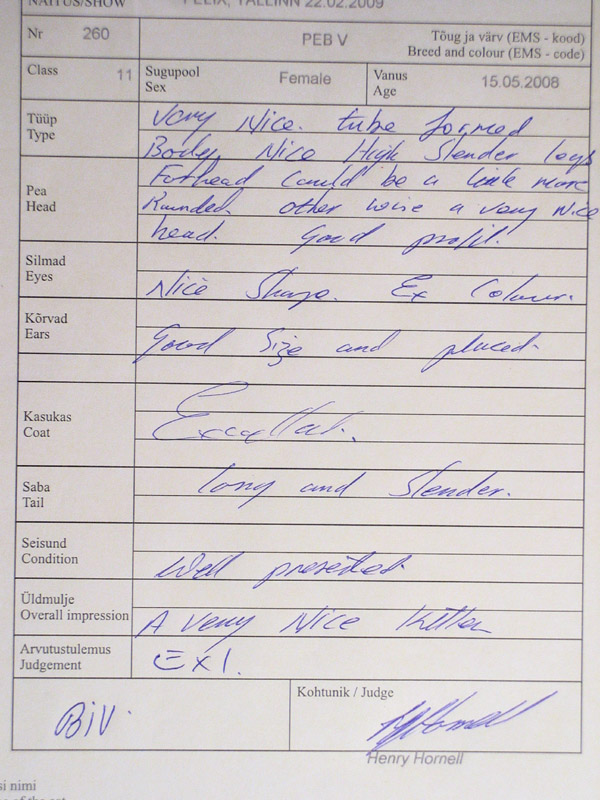 NÄITUS/SHOW FELIX, TALLINN 22.02.2009
Nr 260 PEB V Tõug ja värv (EMS - kood)
Breed and colour (EMS - code)
Class 11 Sugupool Female Vanus 15.05.2008
Sex Age
Tüüp Very Nice. tube formed
Type Body Nice High Slender legs
Forhead could be a little more
Pea Rounded. other wise a very Nice
Head head. Good profil.
Silmad
Eyes Nice Shape. Ex Colour.
Kõrvad
Ears Good Size and placed.
Kasukas
Coat Excellent.
Saba long and Slender.
Tail
Seisund
Condition Well presented.
Üldmulje
Overall impression A very Nice Kitten
Arvutustulemus Ex1.
Judgement
BIV. Kohtunik / Judge
Henry Hornell
si nimi
of the cat